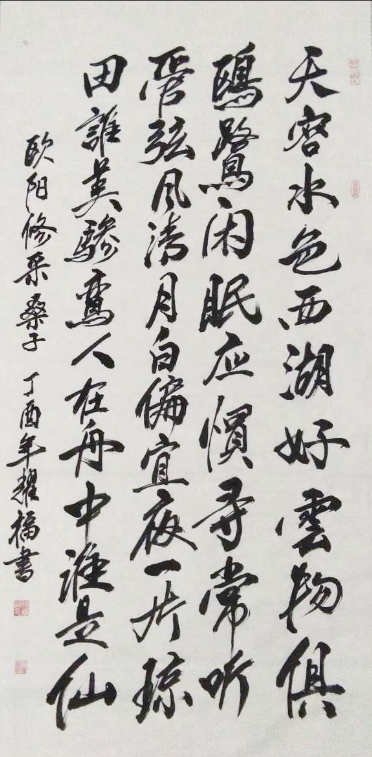 天容水色西湖好雲物俱
鷗鷺闲眠应慣尋常听
管弦风清月白偏宜夜一片琼
田誰羡驂鸾人在舟中谁是仙
欧阳修采桑子 丁酉年耀福書